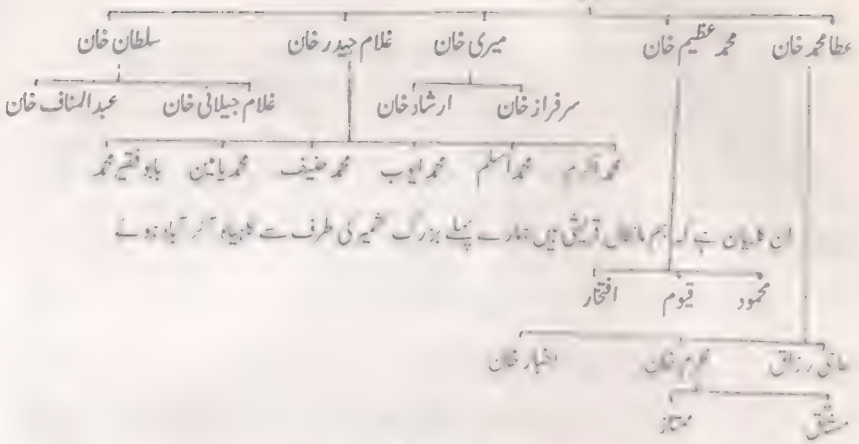 عطا محمد خان محمد عظیم خان میری خان غلام حیدر خان سلطان خان
سرفراز خان ارشاد خان غلام جیلانی خان عبدالمناف خان
محمد اکرم محمد اسلم محمد ایوب محمد حنیف محمد یامین بابو فقیر محمد
ان کا بیان ہے کہ ہم ماخان قریشی ہیں ہمارے پہلے بزرگ کشمیر کی طرف سے آ کر آباد ہوئے
محمود قیوم افتخار
حاجی رزاق غلام خان اظہار خان
مشتاق ممتاز